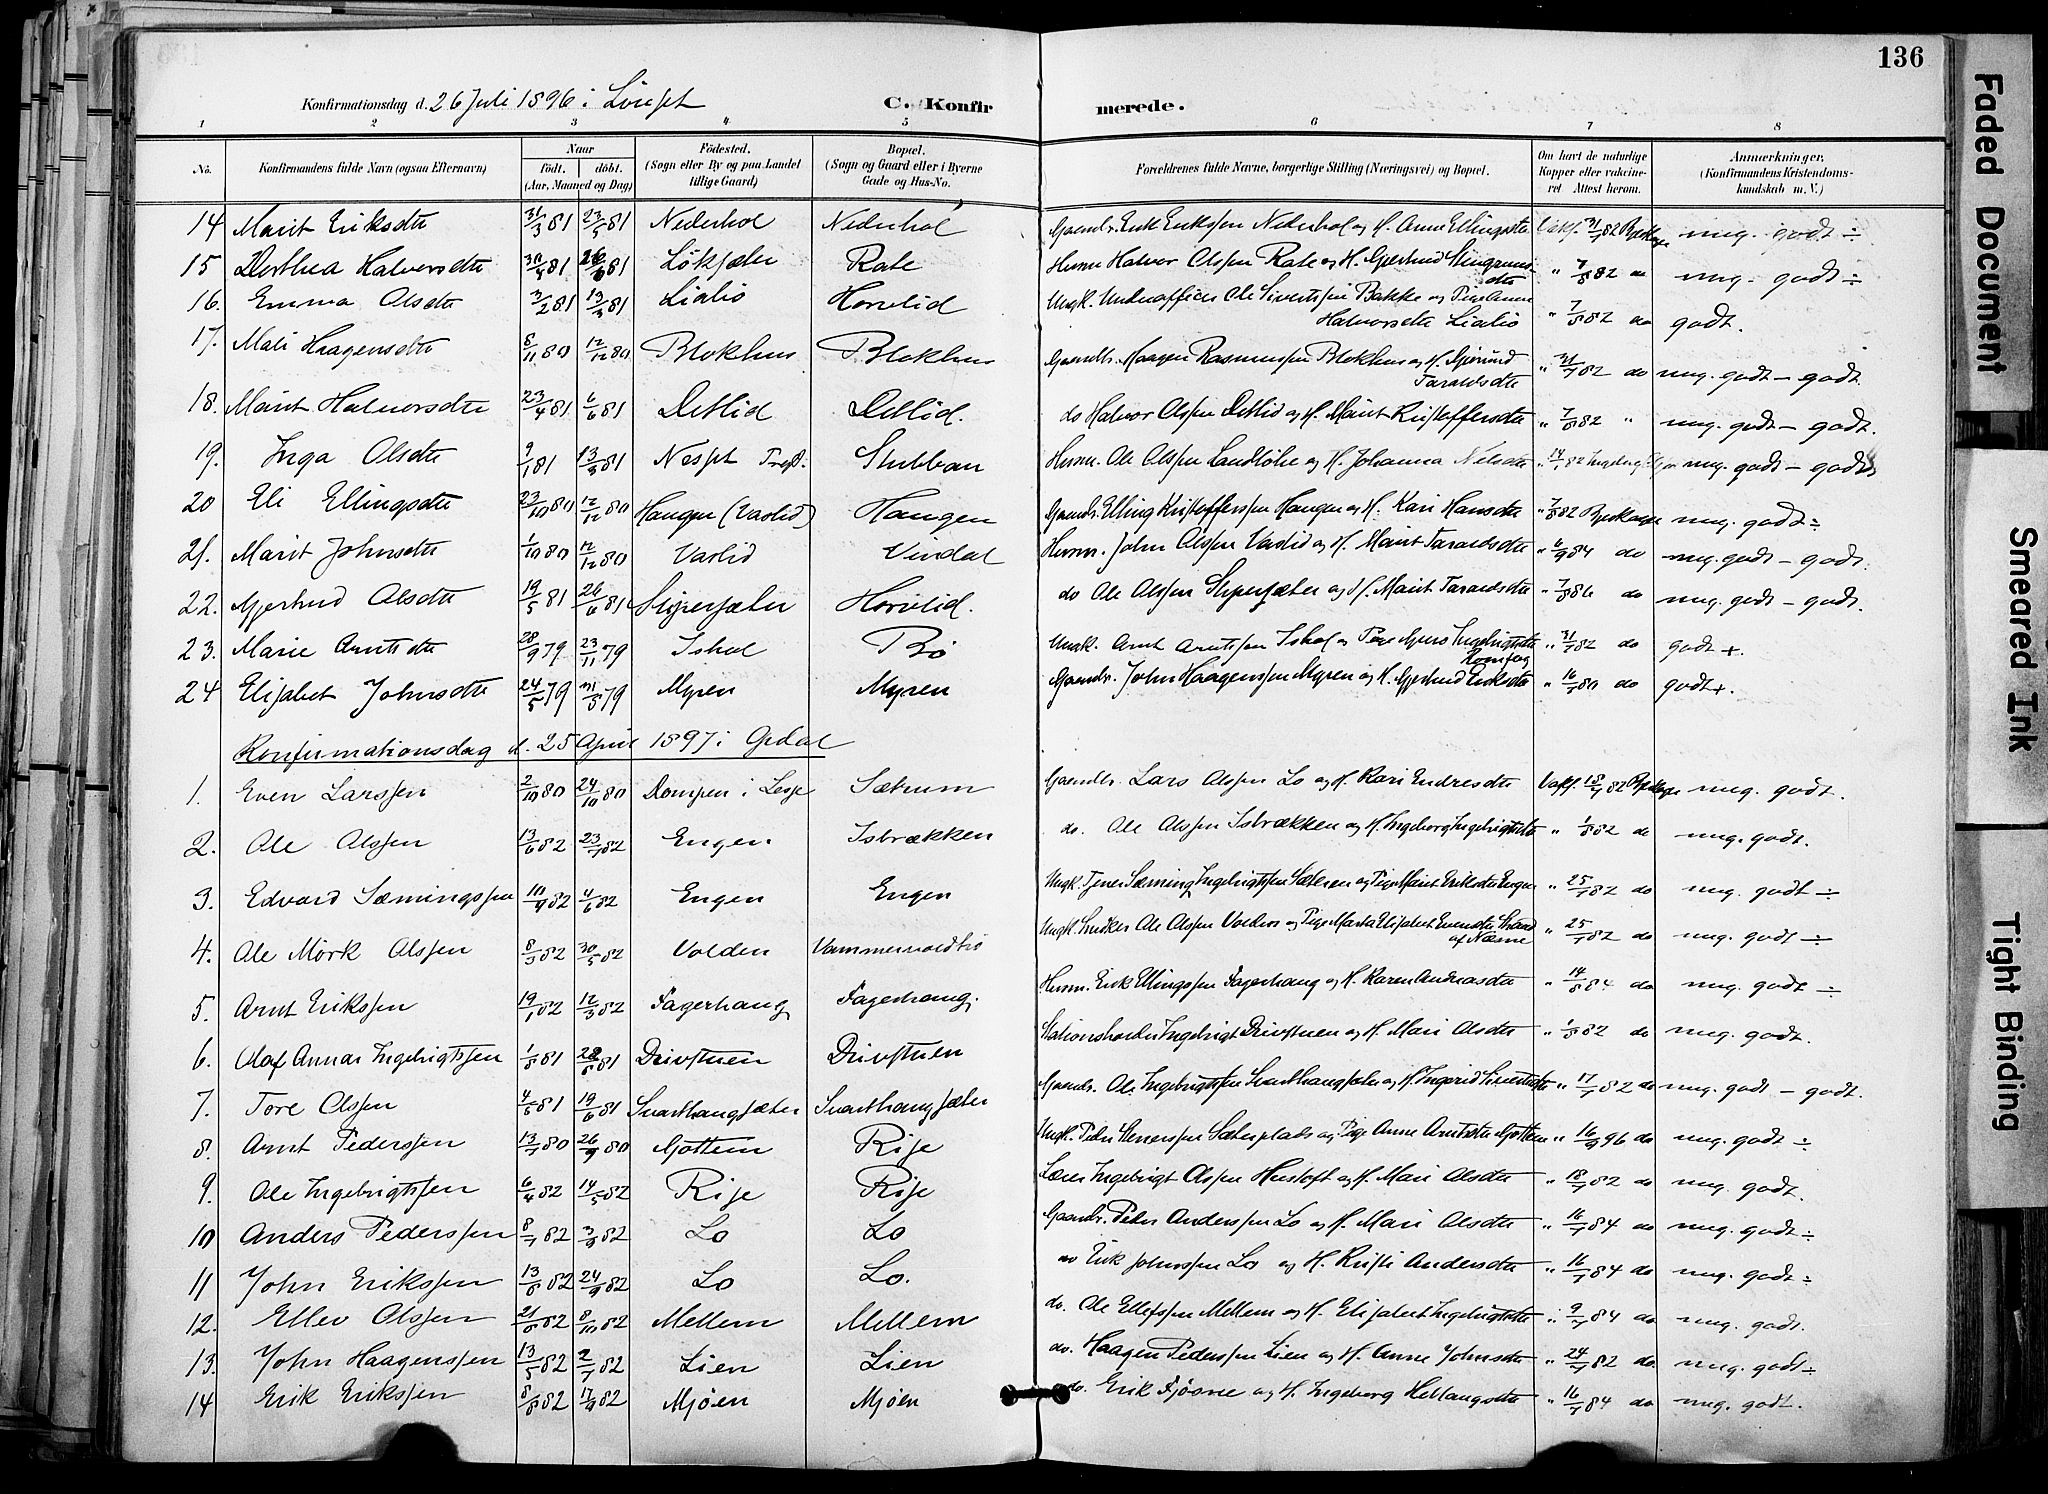 136
Konfirmationsdag d. 26 Juli 1896 i Lönset C. Konfirmerede.
1 2 3 4 5 6 7 8
No. Konfirmandens fulde Navn (ogsaa Efternavn) Naar født. døbt. (Aar, Maaned og Dag) Fødested. (Sogn eller By og paa Landet tillige Gaard) Bopæl. (Sogn og Gaard eller i Byerne Gade og Hus-No.) Forældrenes fulde Navne, borgerlige Stilling (Næringsvei) og Bopæl. Om havt de naturlige Kopper eller vaccineret. Attest herom. Anmærkninger. (Konfirmandens Kristendomskundskab m. V.)
14 Marit Eriksdtr 31/3 81 23/5 81 Nederhol Nederhol Gaardbr. Erik Eriksen Nederhol og H. Anne Ellingsdtr Vakc. 31/7 82 mg. godt ÷
15 Dorthea Halvorsdtr 81 81 Løksæter Rate Husm Halvor Olssen Rate og H. Gjertrud dtr " 7/8 82 do mg. godt ÷
16. Emma Olsdtr 3/2 81 13/3 81 Lialø Horvlid Ungk. Underofficer Ole Sivertssen Bakke og Pige Halvorsdtr Lialø " 7/8 82 do godt.
17. Mali Haagensdtr 8/11 80 12/12 80 Blokhus Blokhus Gaardbr. Haagen Rasmussen Blokhus og H. Taraldsdtr " 31/7 82 do mg. godt – godt
18. Marit Halvorsdtr 23/4 81 6/6 81 Detlid Detlid. do Halvor Olssen Detlid og H. Marit Kristoffersdtr " 7/8 82 " mg. godt – godt.
19. Inga Olsdtr 9/1 81 13/3 81 Stubban Husm. Ole Olssen og H. Johanna Nilsdtr mg. godt – godt
20 Eli Ellingsdtr 23/10 80 12/12 80 Haugen (Vaslid) Haugen Gaardbr. Elling Kristofferssen Haugen og H. Kari Hansdtr " 7/8 82 mg. godt ÷
21. Marit Johnsdtr 1/10 80 12/12 80 Vaslid Vindal Husm. John Olssen Vaslid og H. Marit Taraldsdtr " 6/9 84 do mg. godt – godt.
22. Gjertrud Olsdtr 19/5 81 26/6 81 Horvlid. do Ole Olssen og H. Marit Taraldsdtr " 7/8 86 do mg. godt – godt.
23. Marie Arntsdtr 28/9 79 23/11 79 Ishol Bø Ungk. Arnt Arntssen Ishol og Pige Ingebrigtsdtr " 31/7 82 do godt +.
24 Elisabet Johnsdtr 24/5 79 79 Myren Myren Gaardbr. John Haagenssen Myren og H. Gjertrud Eriksdtr " 16/7 80 do godt +.
Konfirmationsdag d. 25 April 1897 i Opdal
1. Even Larssen 2/10 80 24/10 80 Dompen i Lesje Sætrum Gaardbr. Lars Olssen Lo og H. Kari Endresdtr Vakc. 18/7 82 mg. godt.
2. Ole Olssen 13/6 82 23/7 82 Engen Isbrækken do. Ole Olssen Isbrækken og H. Ingeborg Ingebrigtsdtr " 1/8 82 do mg. godt.
3. Edvard Sæmingssen 10/4 82 4/6 82 Engen Engen Ungk. Tjener Sæming Ingebrigtssen Sæteren og Pige Marit Eriksdtr Engen " 25/7 82 do mg. godt ÷
4. Ole Mørk Olssen 8/3 82 30/5 82 Volden Vammervoldbø Ungk. Snedker Ole Olssen Volden og Pige Marta Elisabet Evensdtr Strand af Næsne " 25/7 82 do mg. godt ÷
5. Arnt Erikssen 19/1 82 12/3 82 Fagerhaug Fagerhaug. Husm. Erik Ellingssen Fagerhaug og H. Karen Andreasdtr " 14/8 84 do mg. godt ÷
6. Olaf Annar Ingebrigtssen 1/5 81 81 Drivstuen Drivstuen Stationsholder Ingebrigt Drivstuen og H. Mari Olsdtr " 1/8 82 do mg. godt.
7. Tore Olssen 4/5 81 19/6 81 Svarthaugsæter Svarthaugsæter Gaardbr. Ole Ingebrigtssen Svarthaugsæter og H. Ingerid Sivertsdtr " 17/7 82 do mg. godt – godt.
8. Arnt Pederssen 13/7 80 26/9 80 Gjottem Rise Ungk. Peder Steenerssen Sæterplads og Pige Anne Arntsdtr Gjottem " 16/9 96 do mg. godt ÷
9. Ole Ingebrigtssen 6/4 82 14/5 82 Rise Rise Lærer Ingebrigt Olssen Husloft og H. Mari Olsdtr " 18/7 82 do mg. godt.
10 Anders Pederssen 8/7 82 3/9 82 Lo Lo Gaardbr. Peder Anderssen Lo og H. Mari Olsdtr " 16/7 84 do mg. godt ÷
11 John Erikssen 13/8 82 24/9 82 Lo Lo. do Erik Johnssen Lo og H. Kristi Andersdtr " 16/7 84 do mg. godt ÷
12. Ellev Olssen 21/8 82 8/10 82 Mellem Mellem do. Ole Ellefssen Mellem og H. Elisabet Ingebrigtsdtr " 9/7 84 do mg. godt.
13. John Haagenssen 13/5 82 2/7 82 Lien Lien do. Haagen Pederssen Lien og H. Anne Johnsdtr " 24/7 82 do. mg. godt ÷
14 Erik Erikssen 8/8 82 17/9 82 Mjøen Mjøen do. Erik Fjøsne og H. Ingeborg Hallvangsdtr " 16/7 84 do mg. godt.
Faded Document
Smeared Ink
Tight Binding